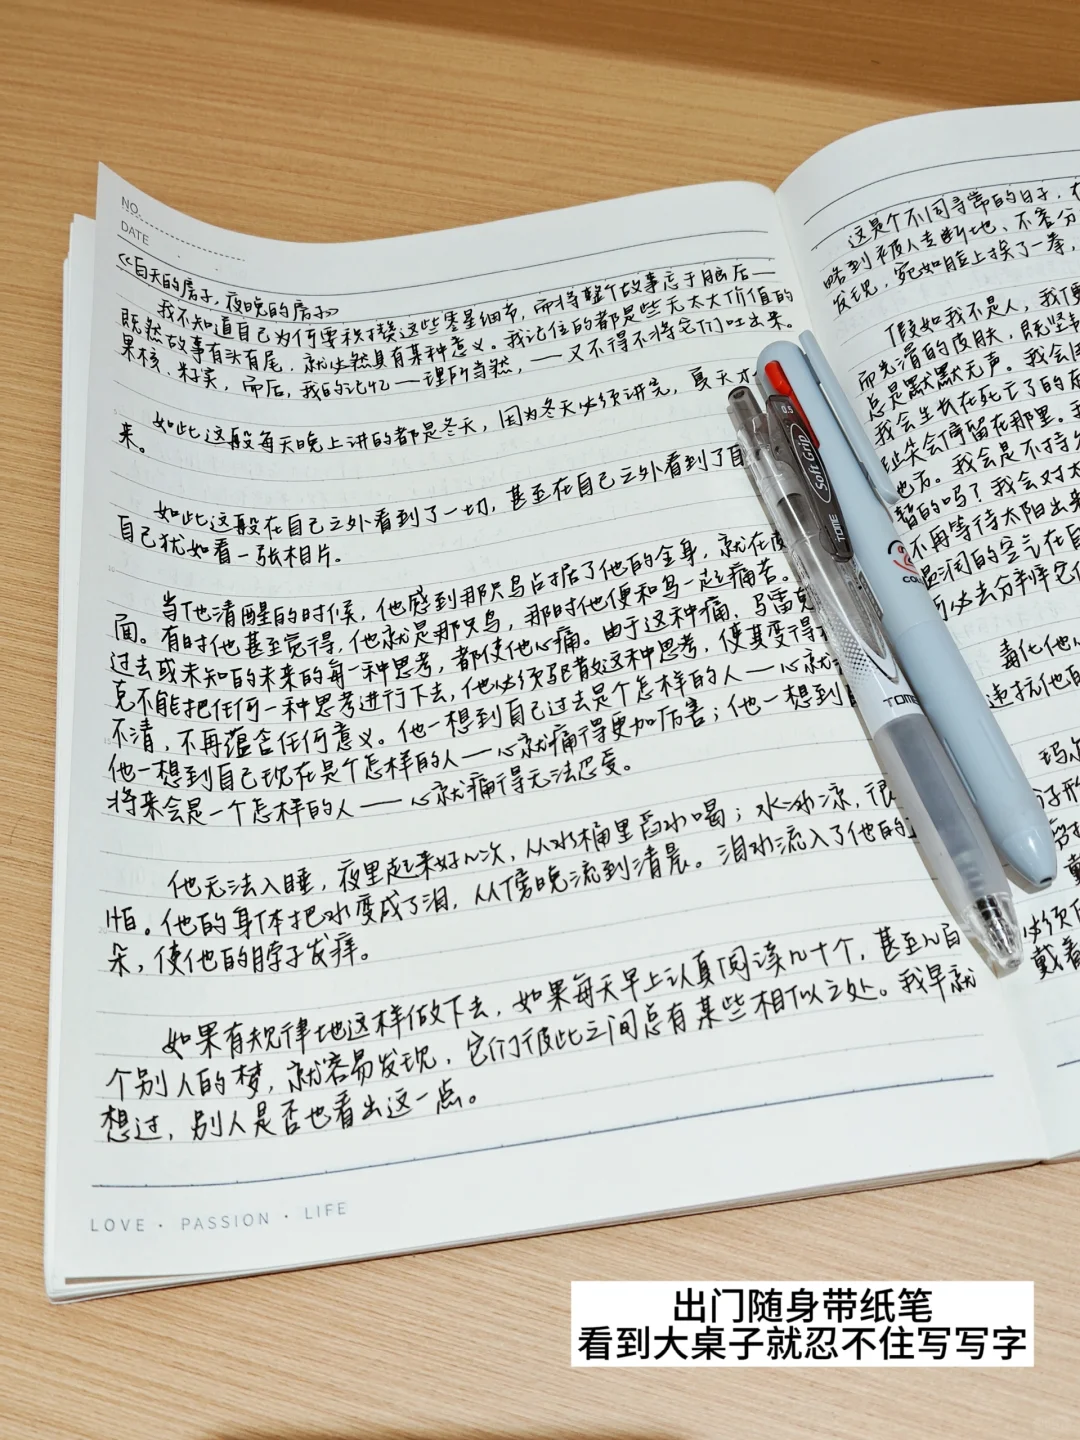 NO.
DATE
《白天的房子,夜晚的房子》
我不知道自己为何要积攒这些零星细节,而将整个故事忘于脑后——
既然故事有头有尾,就必然具有某种意义。我记住的都是些无太大价值的
果核、籽实,而后,我的记忆——理所当然,——又不得不将它们吐出来。
如此这般每天晚上讲的都是冬天,因为冬天必须讲完,夏天才
来。
如此这般在自己之外看到了一切,甚至在自己之外看到了自
自己犹如看一张相片。
当他清醒的时候,他感到那只鸟占据了他的全身,就在皮
面。有时他甚至觉得,他就是那只鸟,那时他便和鸟一起痛苦。
过去或未知的未来的每一种思考,都使他心痛。由于这种痛,马雷克
克不能把任何一种思考进行下去,他必须驱散这种思考,使其变得
不清,不再蕴含任何意义。他一想到自己过去是个怎样的人——心就
他一想到自己现在是个怎样的人——心就痛得更加厉害;他一想到自
将来会是一个怎样的人——心就痛得无法忍受。
他无法入睡,夜里起来好几次,从水桶里舀水喝;水冰凉,很
怕。他的身体把水变成了泪,从傍晚流到清晨。泪水流入了他的
朵,使他的脖子发痒。
如果有规律地这样做下去,如果每天早上认真阅读几十个,甚至几百
个别人的梦,就容易发现,它们彼此之间总有某些相似之处。我早就
想过,别人是否也看出这一点。
LOVE · PASSION · LIFE
这是个不同寻常的日子,在
略到被人专断地、不容分
发现,宛如脸上挨了一拳,
假如我不是人,我便
而光滑的皮肤,既坚韧
总是默默无声。我会用
我会生长在死亡了的东
止矢会停留在那里。我
地方。我会是不持久
暂的吗?我会对太
不再等待太阳出来
温润的空气在自
必去分辨它们
毒化他
违抗他的
玛尔
子形
戴
必须
戴着
0.5
Soft Grip
TOME
TOME
出门随身带纸笔
看到大桌子就忍不住写写字